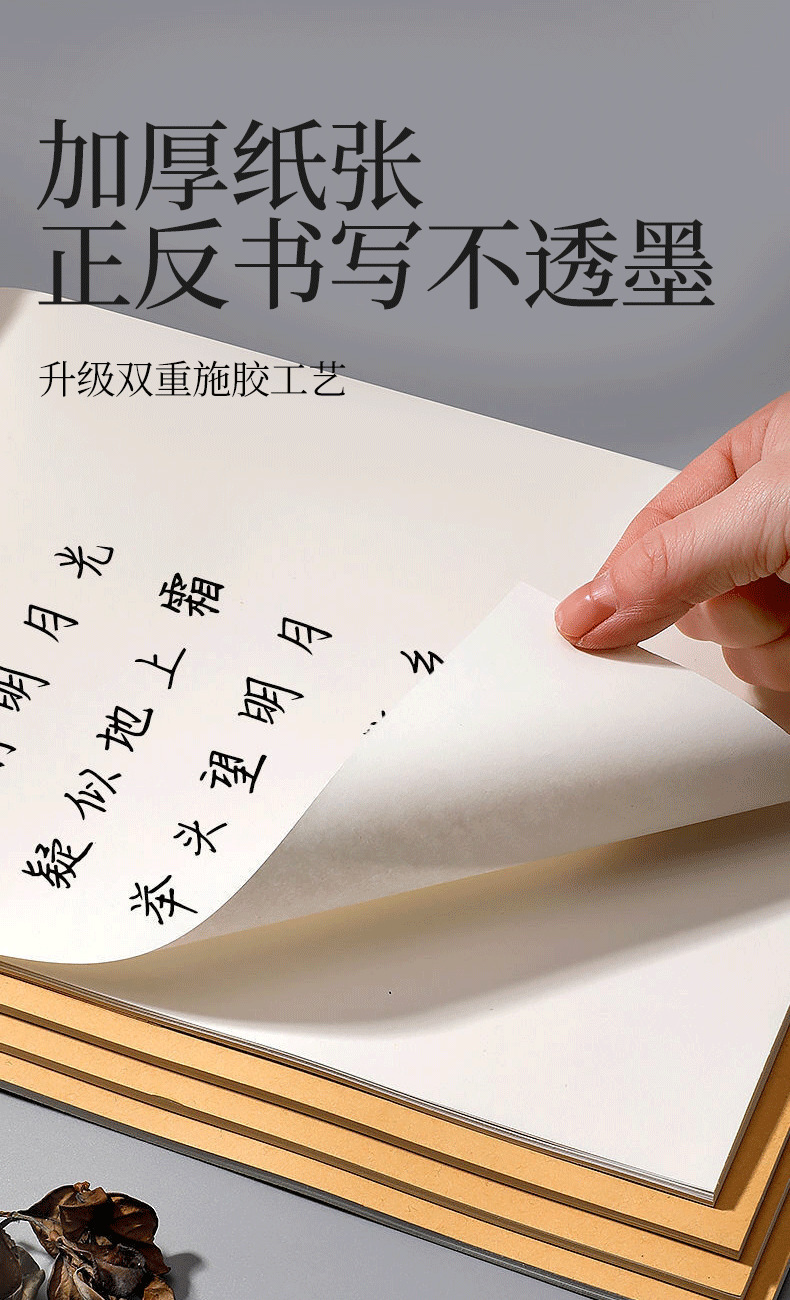 加厚纸张
正反书写不透墨
升级双重施胶工艺
明月光
疑似地上霜
举头望明月
乡